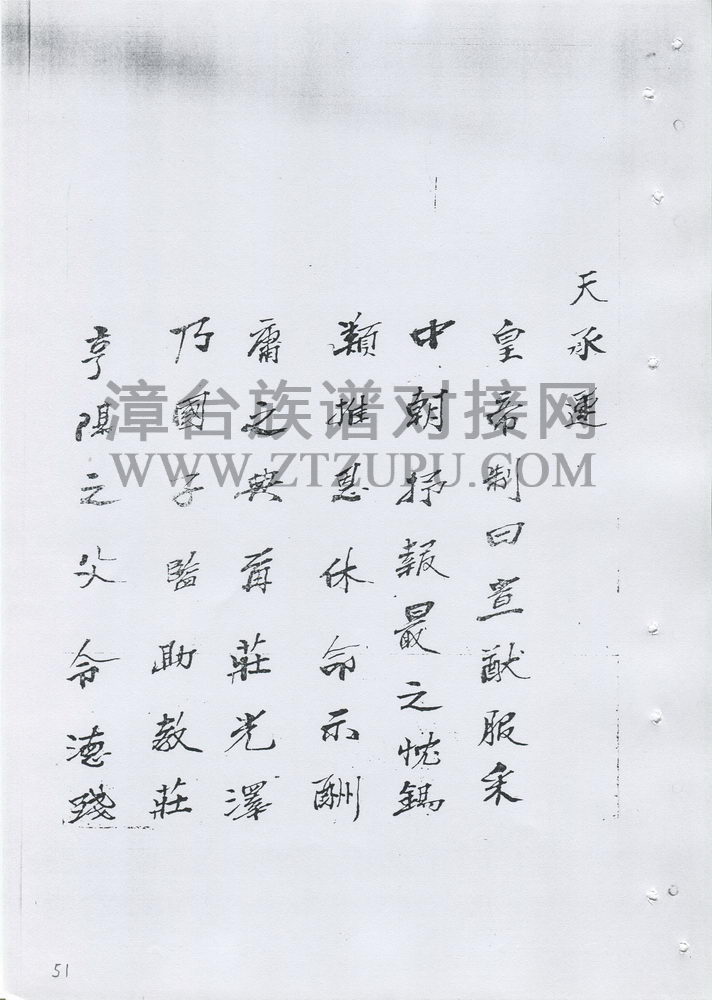 天承運
皇帝制曰宣猷服釆
中朝抒報最之忱錫
類推恩休命示酬
庸之典甭莊光澤
乃國子監助教莊
亨陽之父令德踐
漳台族谱对接网
WWW.ZTZUPU.COM
51